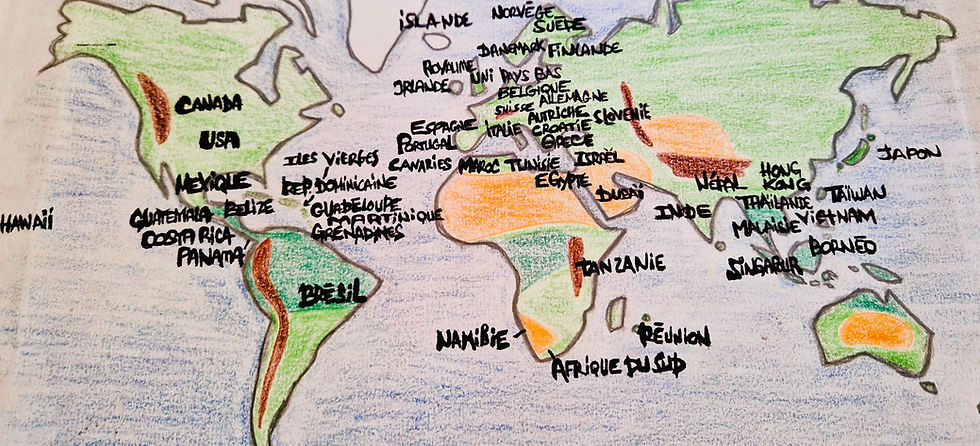 ISLANDE
NORVÈGE
SUÈDE
DANEMARK
FINLANDE
ROYAUME UNI
IRLANDE
PAYS BAS
BELGIQUE
SUISSE
ALLEMAGNE
AUTRICHE
SLOVENIE
ITALIE
CROATIE
GRECE
ESPAGNE
PORTUGAL
CANARIES
MAROC
TUNISIE
ISRAËL
EGYPTE
DUBAÏ
CANADA
USA
MEXIQUE
ILES VIERGES
REP DOMINICAINE
GUADELOUPE
MARTINIQUE
GRENADINES
HAWAÏÏ
GUATEMALA
BELIZE
COSTA RICA
PANAMA
BRÉSIL
NAMIBIE
AFRIQUE DU SUD
TANZANIE
RÉUNION
INDE
NÉPAL
HONG KONG
JAPON
TAÏWAN
THAÏLANDE
VIETNAM
MALAISIE
BORNÉO
SINGAPUR